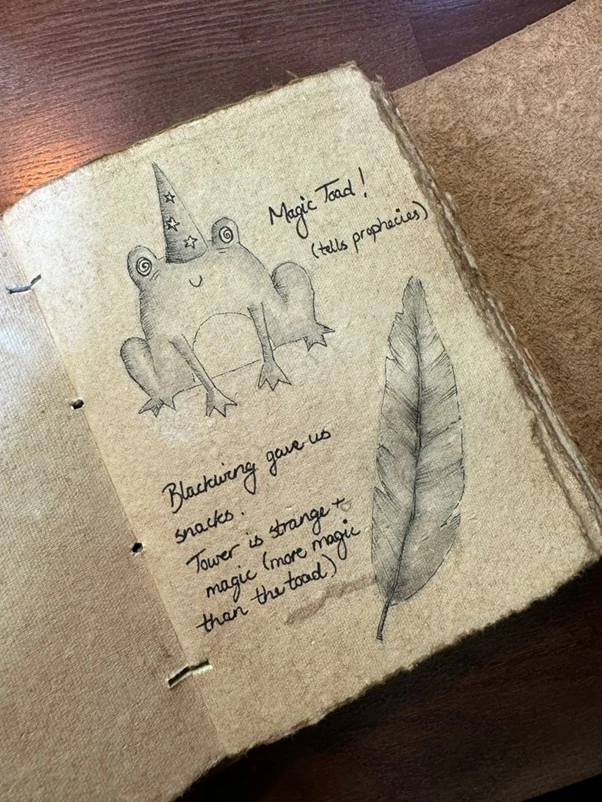 Magic Toad!
(tells prophecies)
Blackwing gave us
snacks.
Tower is strange +
magic (more magic
than the toad)